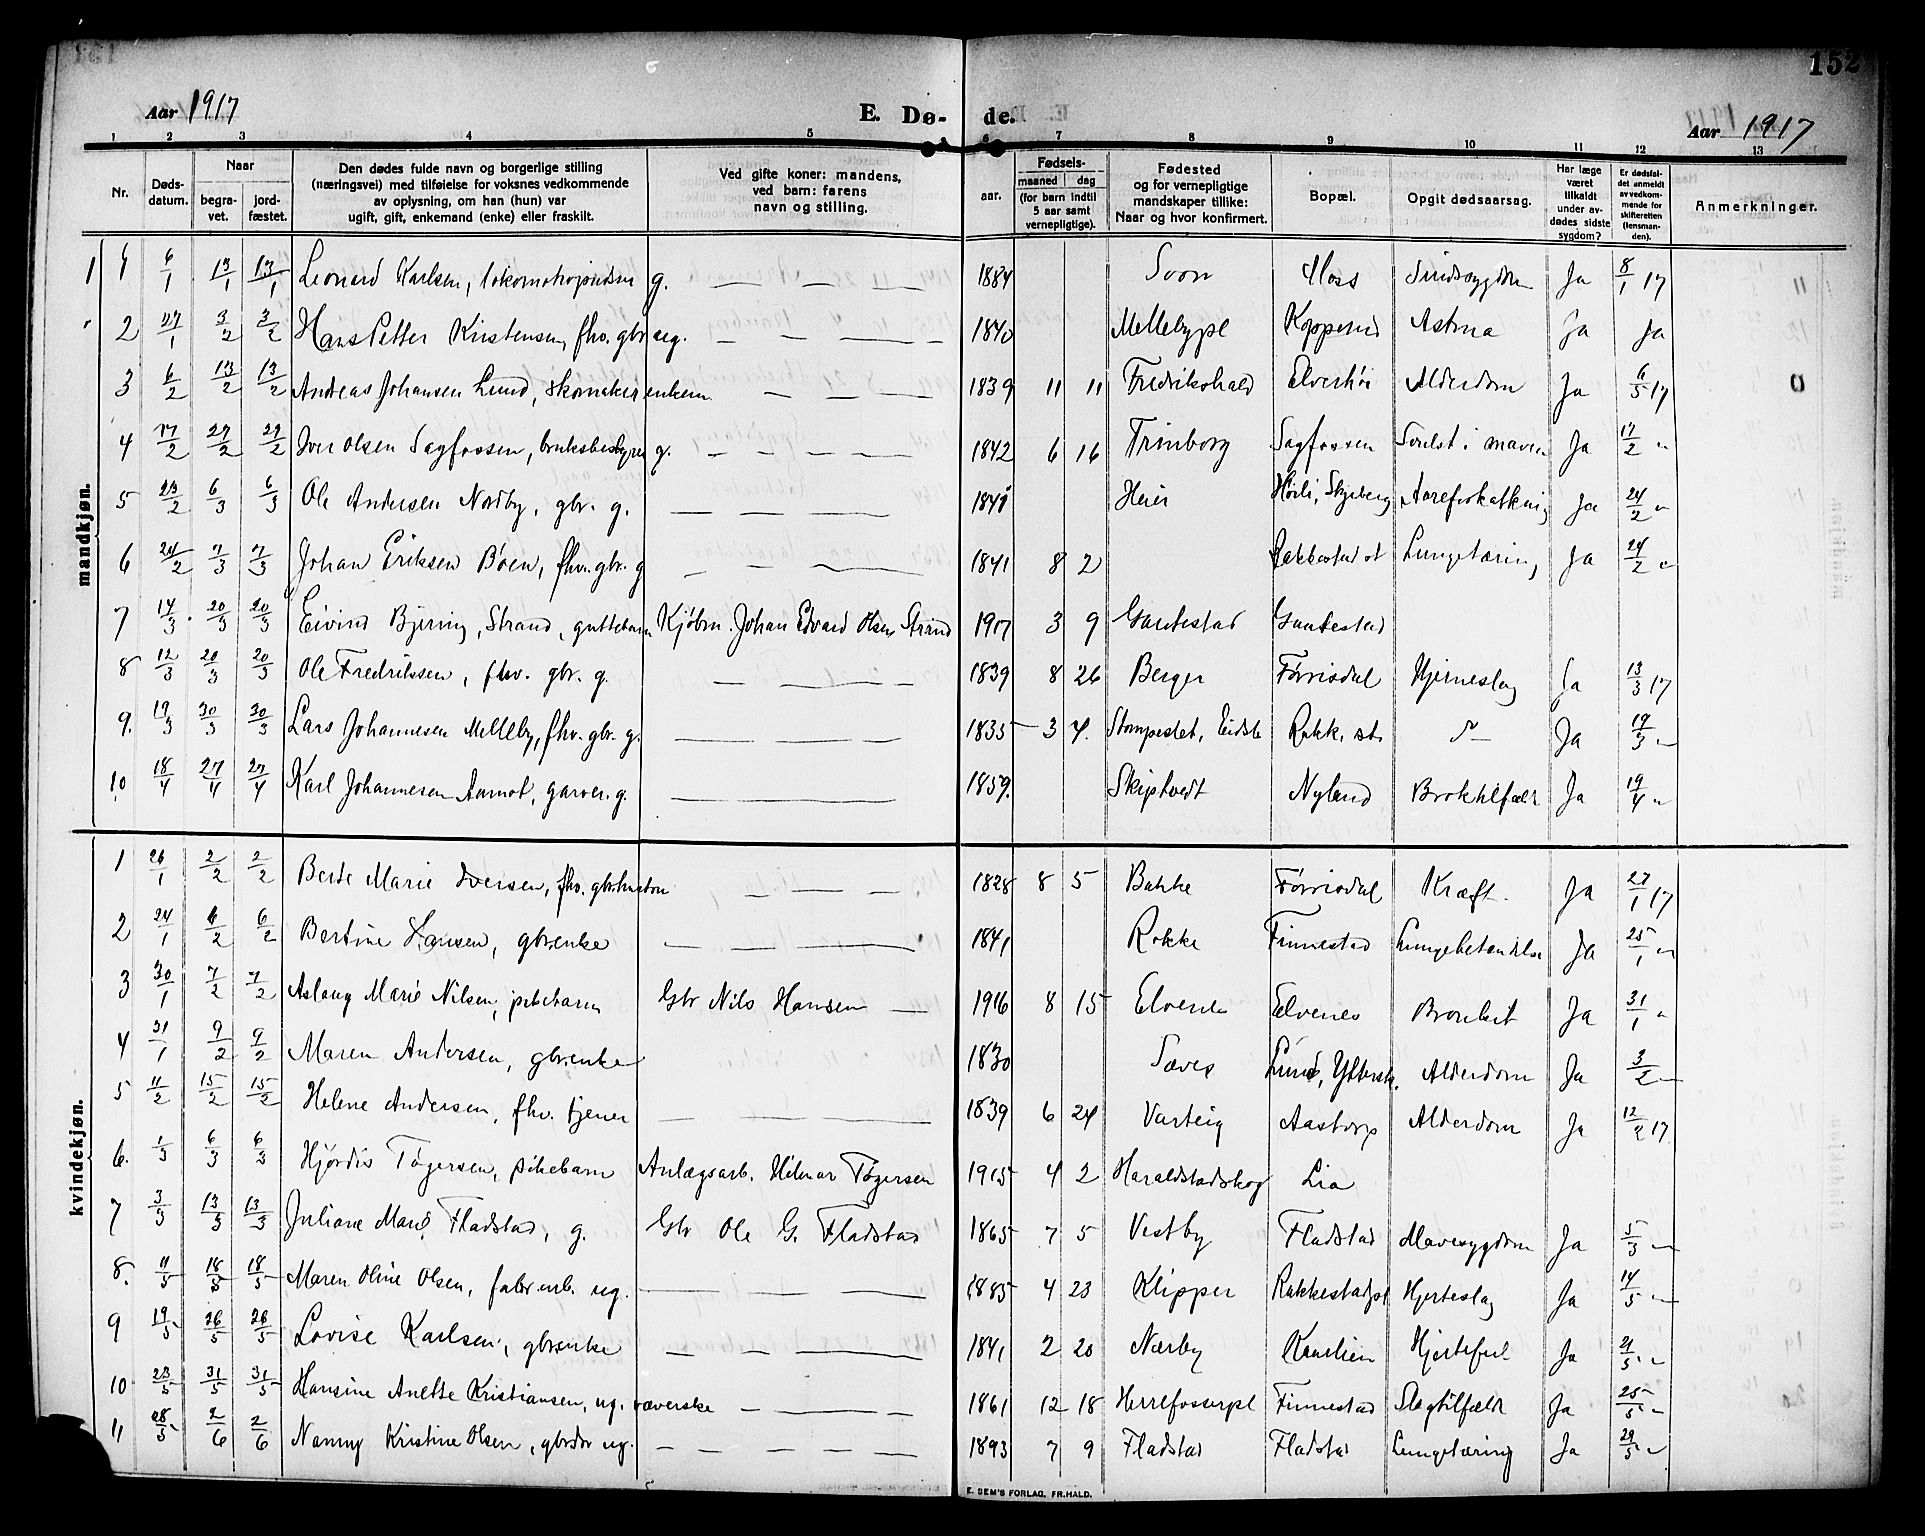 151
152
Aar 1917
E. Dø-
de.
Aar 1917
1 2 3 4 5 6 7 8 9 10 11 12 13
Nr.
Døds-
datum.
Naar
begra-
vet.
jord-
fæstet.
Den dødes fulde navn og borgerlige stilling
(næringsvei) med tilføielse for voksnes vedkommende
av oplysning, om han (hun) var
ugift, gift, enkemand (enke) eller fraskilt.
Ved gifte koner: mandens,
ved barn: farens
navn og stilling.
aar.
Fødsels-
maaned dag
(for barn indtil
5 aar samt
vernepligtige).
Fødested
og for vernepligtige
mandskaper tillike:
Naar og hvor konfirmert.
Bopæl.
Opgit dødsaarsag.
Har læge
været
tilkaldt
under av-
dødes sidste
sygdom?
Er dødsfal-
det anmeldt
av vedkom-
mende for
skifteretten
(lensman-
den).
Anmerkninger.
mandkjøn.
1 1 6/1 13/1 13/1 Leonard Karlsen, g. — — — 1884 Soon Moss Sindssygdom Ja 8/1 17
2 27/1 3/2 3/2 Hans Petter Kristensen, fhv. gbr. ug. — — — — 1840 Mellebypl Kopperud Astma Ja Ja
3 6/2 13/2 13/2 Andreas Johansen Lund, skomaker enkem. — — — 1839 11 11 Fredrikshald Elverhøi Alderdom Ja 6/5 17
4 17/2 27/2 27/2 Iver Olsen Sagfossen, bruksbestyrer g. — — — — 1842 6 16 Trinborg Sagfossen Svulst i maven Ja 17/2 "
5 23/2 6/3 6/3 Ole Andersen Nordby, gbr. g. — — — 1841 Heier Høili, Skjeberg Aareforkalkning Ja 24/2 "
6 24/2 7/3 7/3 Johan Eriksen Bøen, fhv. gbr. g — — — 1841 8 2 Rakkestad st Lungetæring Ja 24/2 "
7 14/3 20/3 20/3 Eivind Bjering, Strand, guttebarn Kjøbm. Johan Edvard Olsen Strand 1917 3 9 Gautestad Gautestad
8 12/3 20/3 20/3 Ole Fredriksen, fhv. gbr. g. — — — 1839 8 26 Berger Førrisdal Hjerneslag Ja 13/3 17
9. 19/3 30/3 30/3 Lars Johannesen Melleby, fhv. gbr. g. — — — 1835 — 3 4. Stompeslet, Eidsb Rakk. st. — " — Ja 19/3 "
10 18/4 27/4 27/4 Karl Johannesen Aamot, garver. g. — — — 1859. Skiptvedt Nyland Broktilfælde Ja 19/4 "
kvindekjøn.
1 26/1 2/2 2/2 Berte Marie Iversen, fhv. gbrhustru — — — 1828 8 5 Bakke Førrisdal Kræft. Ja 27/1 17
2 24/1 6/2 6/2 Bertine Hansen, gbrenke — — — 1841 Rokke Finnestad Lungebetændelse Ja 25/1 "
3 30/1 7/2 7/2 Aslaug Marie Nilsen, pikebarn Gbr Nils Hansen — 1916 8 15 Elvenes Elvenes Bronkit Ja 31/1 "
4 31/1 9/2 9/2 Maren Andersen, gbrenke 1830 Sæves Lund, Alderdom Ja 3/2 "
5 11/2 15/2 15/2 Helene Andersen, fhv. tjener — — — 1839 6 24 Varteig Aastorp Alderdom Ja 12/2 17
6. 1/3 6/3 6/3 Hjørdis Tøgersen, pikebarn Anlægsarb. Hilmar Tøgersen 1915 4 2 Haraldstadskog Lia
7 3/3 13/3 13/3 Juliane Marie Fladstad, g. Gbr Ole G. Fladstad 1865 7 5 Vestby Fladstad Mavesygdom Ja 5/3 "
8. 11/5 18/5 18/5 Maren Oline Olsen, fabr. arb. ug. — — — 1885 4 23 Klipper Rakkestadpl Hjerteslag Ja 14/5 "
9 19/5 26/5 26/5 Lovise Karlsen, gbrenke — — — — 1841 2 20 Nærby Hjertefeil Ja 21/5 "
10 23/5 31/5 31/5 Hansine Anette Kristiansen, ug. væverske — — — 1861 12 18 Herrefosserpl Finnestad Slagtilfælde Ja 25/5 "
11 28/5 2/6 2/6 Nanny Kristine Olsen, gbrdtr ug. — — — — 1893 7 9 Fladstad Fladstad Lungetæring Ja 29/5 "
E. SEM'S FORLAG, FR.HALD.